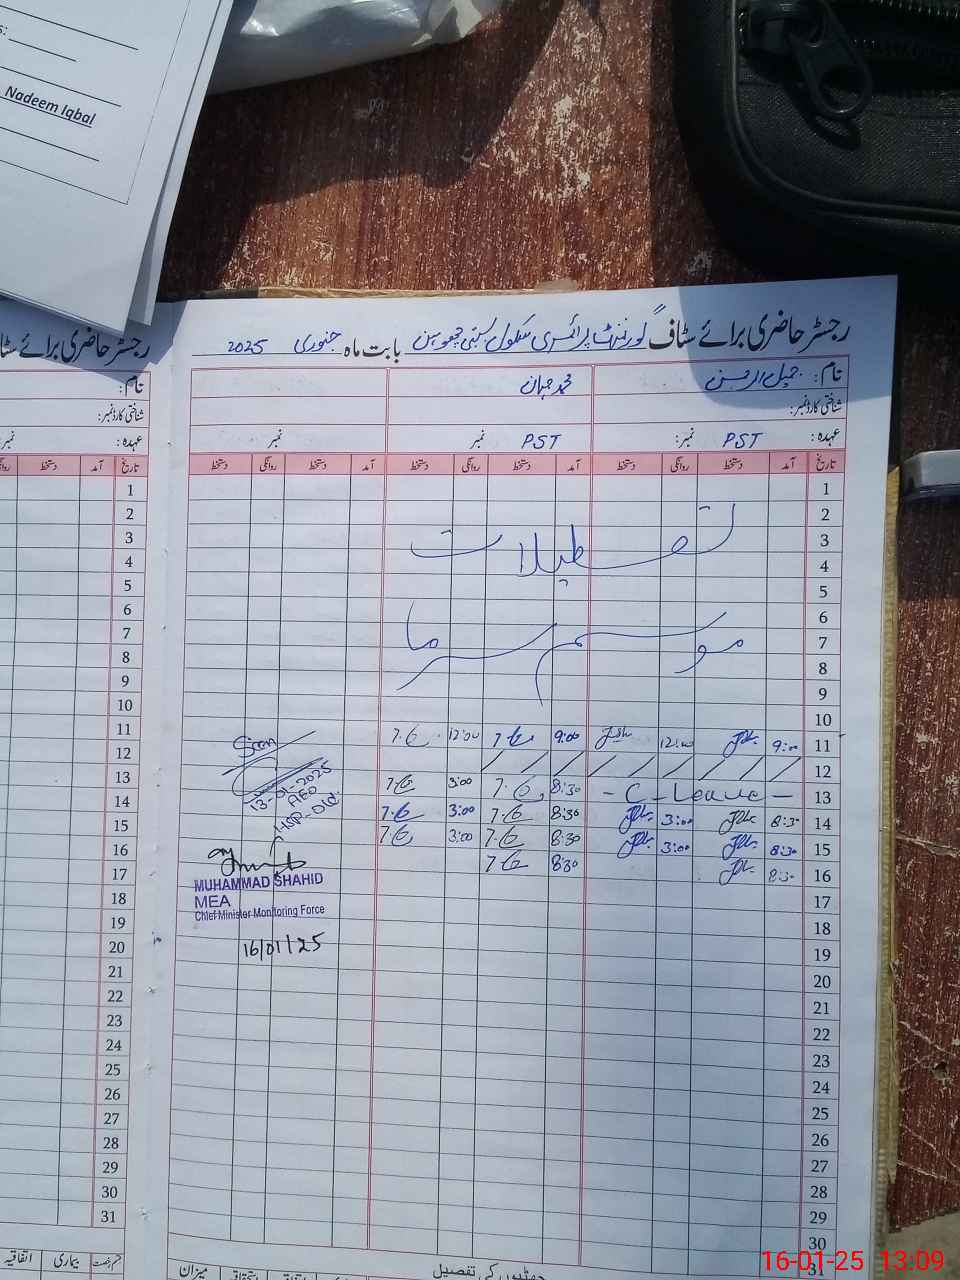 Nadeem Iqbal
رجسٹر حاضری برائے سٹاف گورنمنٹ پرائمری سکول بستی بابت ماہ جنوری 2025
رجسٹر حاضری برائے سٹا
نام: جمیل الرحمن
محمد
شناختی کارڈ نمبر:
عہدہ: PST نمبر: PST نمبر نمبر
تاریخ آمد دستخط روانگی دستخط آمد دستخط روانگی دستخط آمد دستخط روانگی دستخط
1
2
3
4
5
6
7
8
9
10
تعطیلات
موسم سرما
11 9:00 12:00 9:00 12:00
12
13 - C_Leave - 8:30 3:00
14 8:30 3:00 8:30 3:00
15 8:30 3:00 8:30 3:00
16 8:30 8:30
17
18
19
20
21
22
23
24
25
26
27
28
29
30
31
Seen
13-01-2025
AEO
MUHAMMAD SHAHID
MEA
Chief Minister Monitoring Force
16/01/25
چھٹیوں کی تفصیل
میزان
نام:
شناختی کارڈ نمبر:
عہدہ:
تاریخ آمد دستخط
1
2
3
4
5
6
7
8
9
10
11
12
13
14
15
16
17
18
19
20
21
22
23
24
25
26
27
28
29
30
31
بیماری اتفاقیہ
16-01-25 13:09